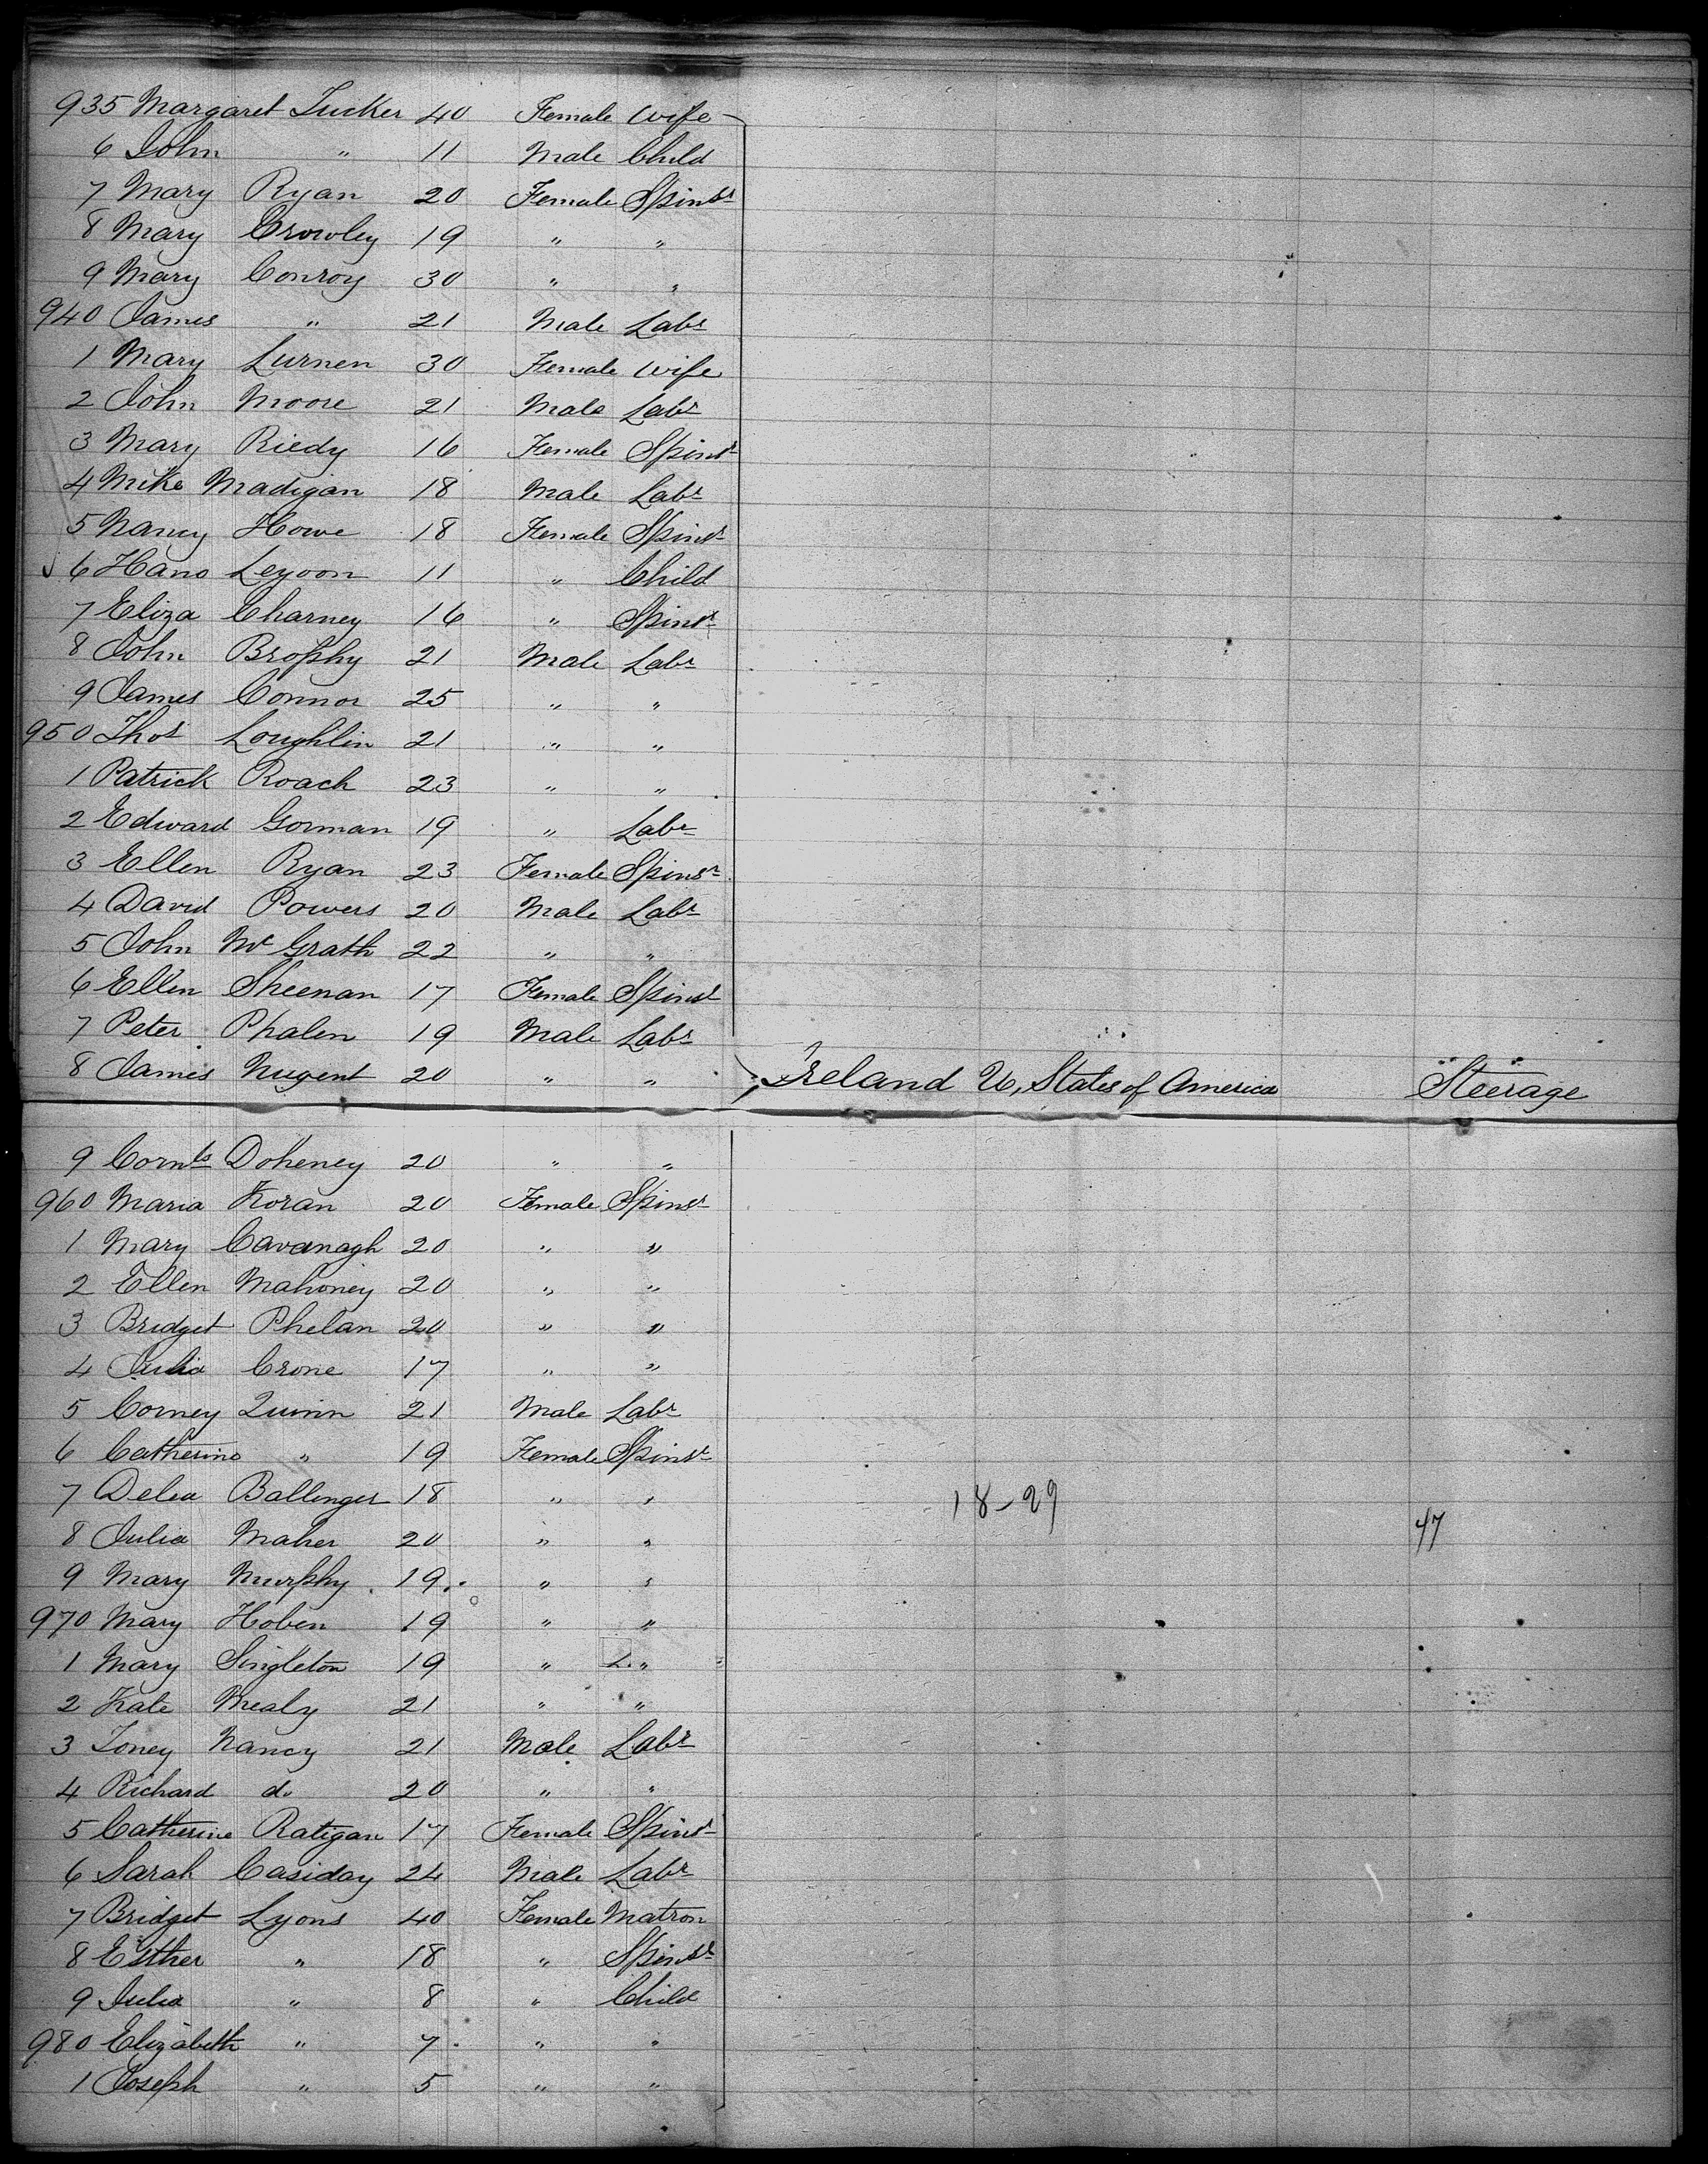 935 Margaret Tucker 40 Female Wife
6 John " 11 Male Child
7 Mary Ryan 20 Female Spinsr
8 Mary Crowley 19 " "
9 Mary Conroy 30 " "
940 James " 21 Male Labr
1 Mary Lurnen 30 Female Wife
2 John Moore 21 Male Labr
3 Mary Riedy 16 Female Spinsr
4 Mike Madigan 18 Male Labr
5 Nancy Howe 18 Female Spinsr
6 Hano Leyoon 11 " Child
7 Eliza Charney 16 " Spinsr
8 John Brophy 21 Male Labr
9 James Connor 25 " "
950 Thos Loughlin 21 " "
1 Patrick Roach 23 " "
2 Edward Gorman 19 " Labr
3 Ellen Ryan 23 Female Spinsr
4 David Powers 20 Male Labr
5 John Mc Grath 22 " "
6 Ellen Sheenan 17 Female Spinsr
7 Peter Phalen 19 Male Labr
8 James Nugent 20 " " Ireland U, States of America Steerage
9 Cornls Doheney 20 " "
960 Maria Horan 20 Female Spinsr
1 Mary Cavanagh 20 " "
2 Ellen Mahoney 20 " "
3 Bridget Phelan 20 " "
4 Julia Crone 17 " "
5 Corney Quinn 21 Male Labr
6 Catherine " 19 Female Spinsr
7 Delia Ballenger 18 " " 18-29
8 Julia Maher 20 " " 47
9 Mary Murphy 19 " "
970 Mary Hoben 19 " "
1 Mary Singleton 19 " "
2 Kate Mealy 21 " "
3 Toney Nancy 21 Male Labr
4 Richard do 20 " "
5 Catherine Ratigan 17 Female Spinsr
6 Sarah Casiday 24 Male Labr
7 Bridget Lyons 40 Female Matron
8 Esther " 18 " Spinsr
9 Julia " 8 " Child
980 Elizabeth " 7 " "
1 Joseph " 5 " "